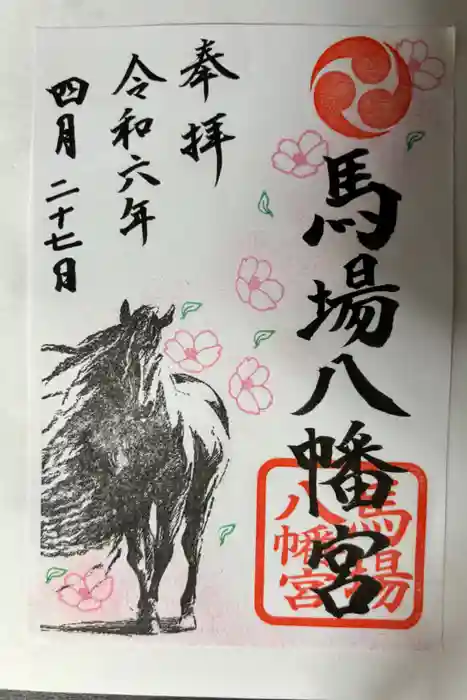 馬場八幡宮
奉拝
令和六年
四月二十七日
馬場
八幡宮